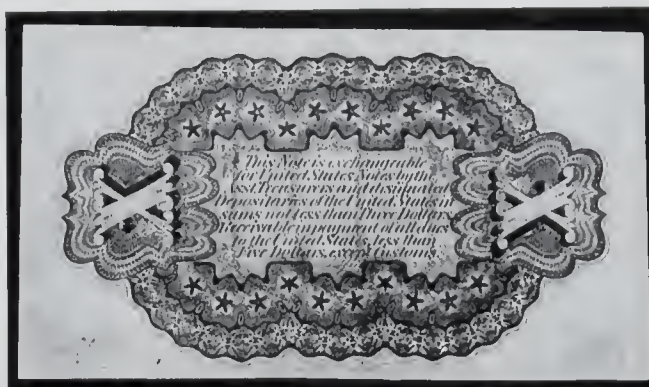 This Note is exchangeable
for United States Notes by the
Asst. Treasurers and designated
depositaries of the United States in
sums not less than Three Dollars
receivable in payment of all dues
to the United States less than
Five Dollars, except customs.